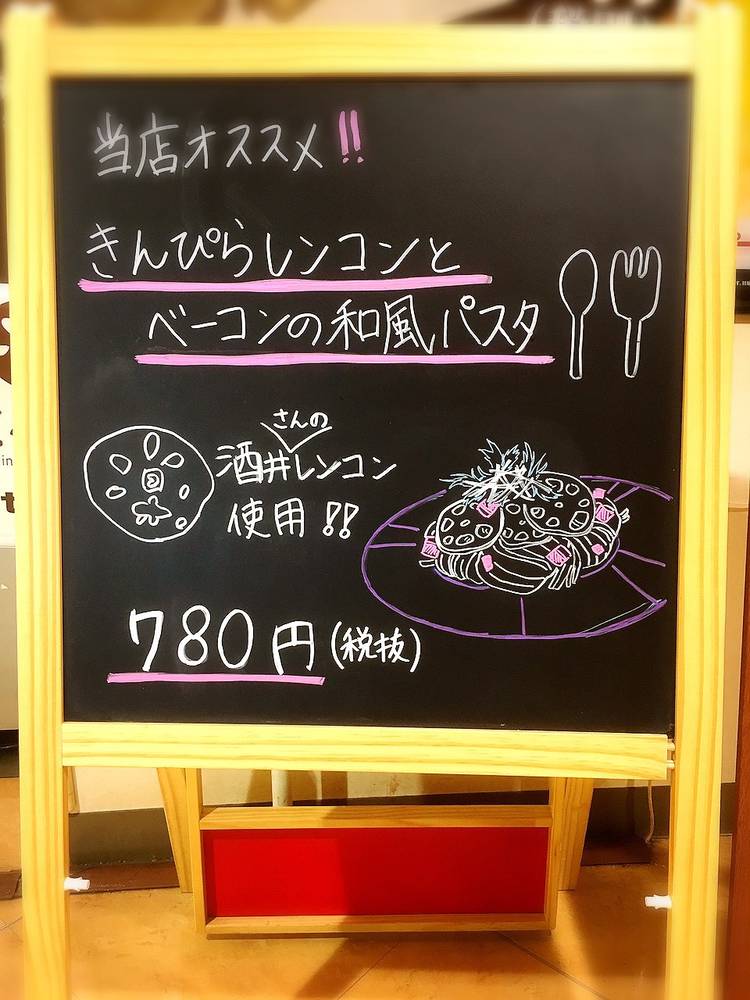 当店オススメ!!
きんぴらレンコンと
ベーコンの和風パスタ
さんの
酒井レンコン
使用!!
780円(税抜)